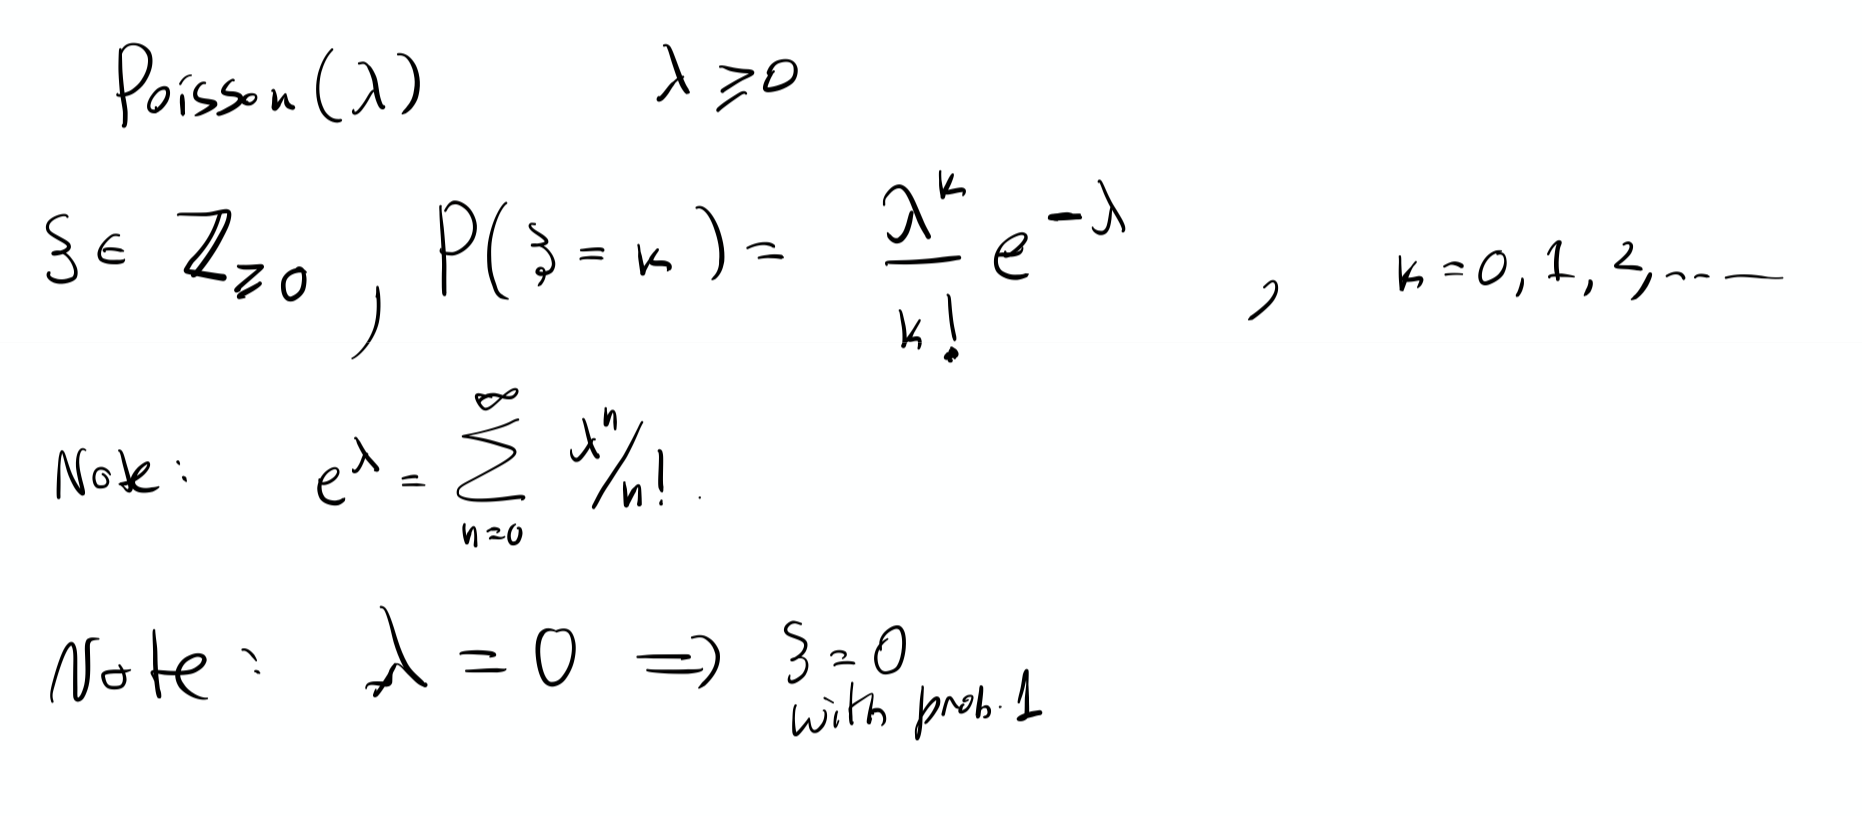 Poisson(λ) λ ≥ 0
ξ ∈ ℤ_{≥0}, P(ξ = k) = \frac{λ^k}{k!} e^{-λ}, k = 0, 1, 2, ...
Note: e^λ = \sum_{n=0}^{∞} λ^n/n!.
Note: λ = 0 ⇒ ξ = 0
with prob. 1